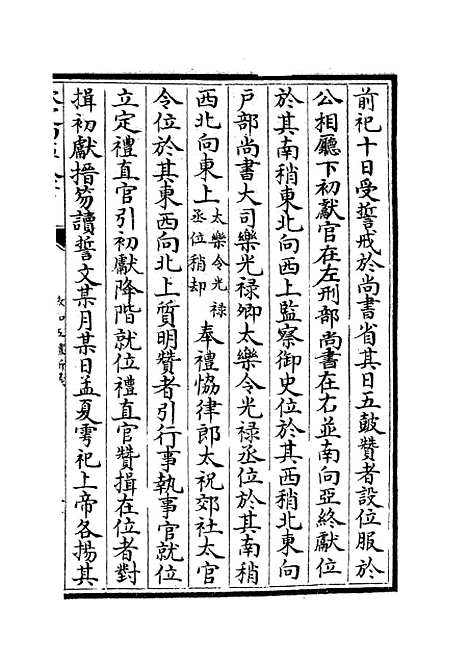 前祀十日受誓戒於尚書省其日五鼓贊者設位服於
公相廳下初獻官在左刑部尚書在右並南向亞終獻位
於其南稍東北向西上監察御史位於其西稍北東向
戶部尚書大司樂光祿卿太樂令光祿丞位於其南稍
西北向東上太樂令光祿丞位稍却奉禮協律郎太祝郊社太官
令位於其東西向北上質明贊者引行事執事官就位
立定禮直官引初獻降階就位禮直官贊揖在位者對
揖初獻搢笏讀誓文某月某日孟夏雩祀上帝各揚其